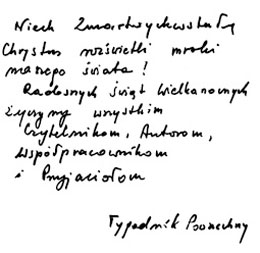 Niech Zmartwychwstały
Chrystus rozświetli mroki
naszego świata!
Radosnych świąt Wielkanocnych
życzymy wszystkim
Czytelnikom, Autorom,
współpracownikom
i Przyjaciołom
Tygodnik Powszechny